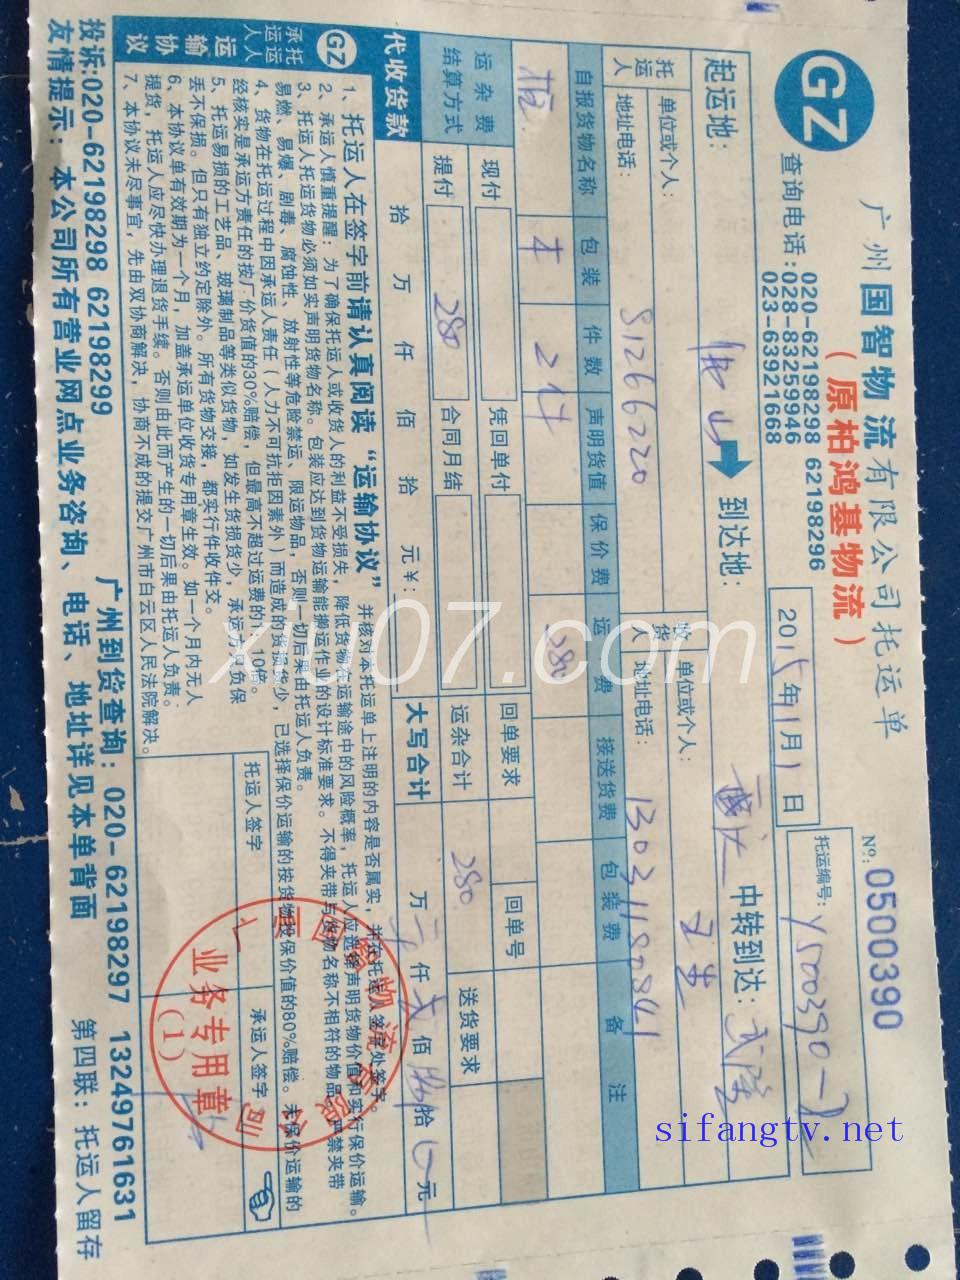 GZ
广州国智物流有限公司托运单
（原柏鸿基物流）
查询电话: 020-62198298 62198296
028-83259946
023-63921668
2015年1月1日
№: 0500390
托运编号: Y500390-2
起运地: 佛山
到达地: 重庆
中转到达: 武隆
托运人
单位或个人:
地址电话: 81266220
收货人
单位或个人: 王生
地址电话:
自报货物名称 包装 件数 声明货值 保价费 运费 接送货费 包装费 备注
2件 280
运杂费结算方式
现付 凭回单付 回单要求 回单号
提付 280 合同月结 运杂合计 280 送货要求
代收货款
拾 万 仟 佰 拾 元¥:
大写合计 万 仟 贰 佰 捌 拾 元
GZ
承托运运人人
运输协议
1、托运人在签字前请认真阅读“运输协议”并核对本托运单上注明的内容是否属实，并在托运人签字处签字。
2、承运人慎重提醒：为了确保托运人或收货人的利益不受损失，降低货物在运输途中的风险概率，托运人应选择声明货物价值和实行保价运输。
3、托运人托运货物必须如实声明货物名称。包装应达到货物运输能搬运作业的设计标准要求。不得夹带与货物名称不相符的物品，严禁夹带
易燃、易爆、剧毒、腐蚀性、放射性等危险禁运、限运物品，否则一切后果由托运人负责。
4、货物在托运过程中因承运人责任（人力不可抗拒因素外）而造成的货损货少，已选择保价运输的按货物投保价值的80%赔偿。未保价运输的
经核实是承运方责任的按厂价货值的30%赔偿，但最高不超过运费的1-10倍。
5、托运易损的工艺品、玻璃制品等类似货物，如发生货损货少，承运方负保
丢不保损。但只有独立约定除外。所有货物交接，都实行件收件交。
6、本协议单有效期为一个月，加盖承运单位收货专用章生效。如一个月内无人
提货，托运人应尽快办理退货手续。否则由此而产生的一切后果由托运人负责。
7、本协议未尽事宜，先由双协商解决，协商不成的提交广州市白云区人民法院解决。
托运人签字
承运人签字
业务专用章
(1)
投诉:020-62198298 62198299
广州到货查询: 020-62198297 13249761631
友情提示：本公司所有营业网点业务咨询、电话、地址详见本单背面
第四联：托运人留存
xiu07.com
sifangtv.net